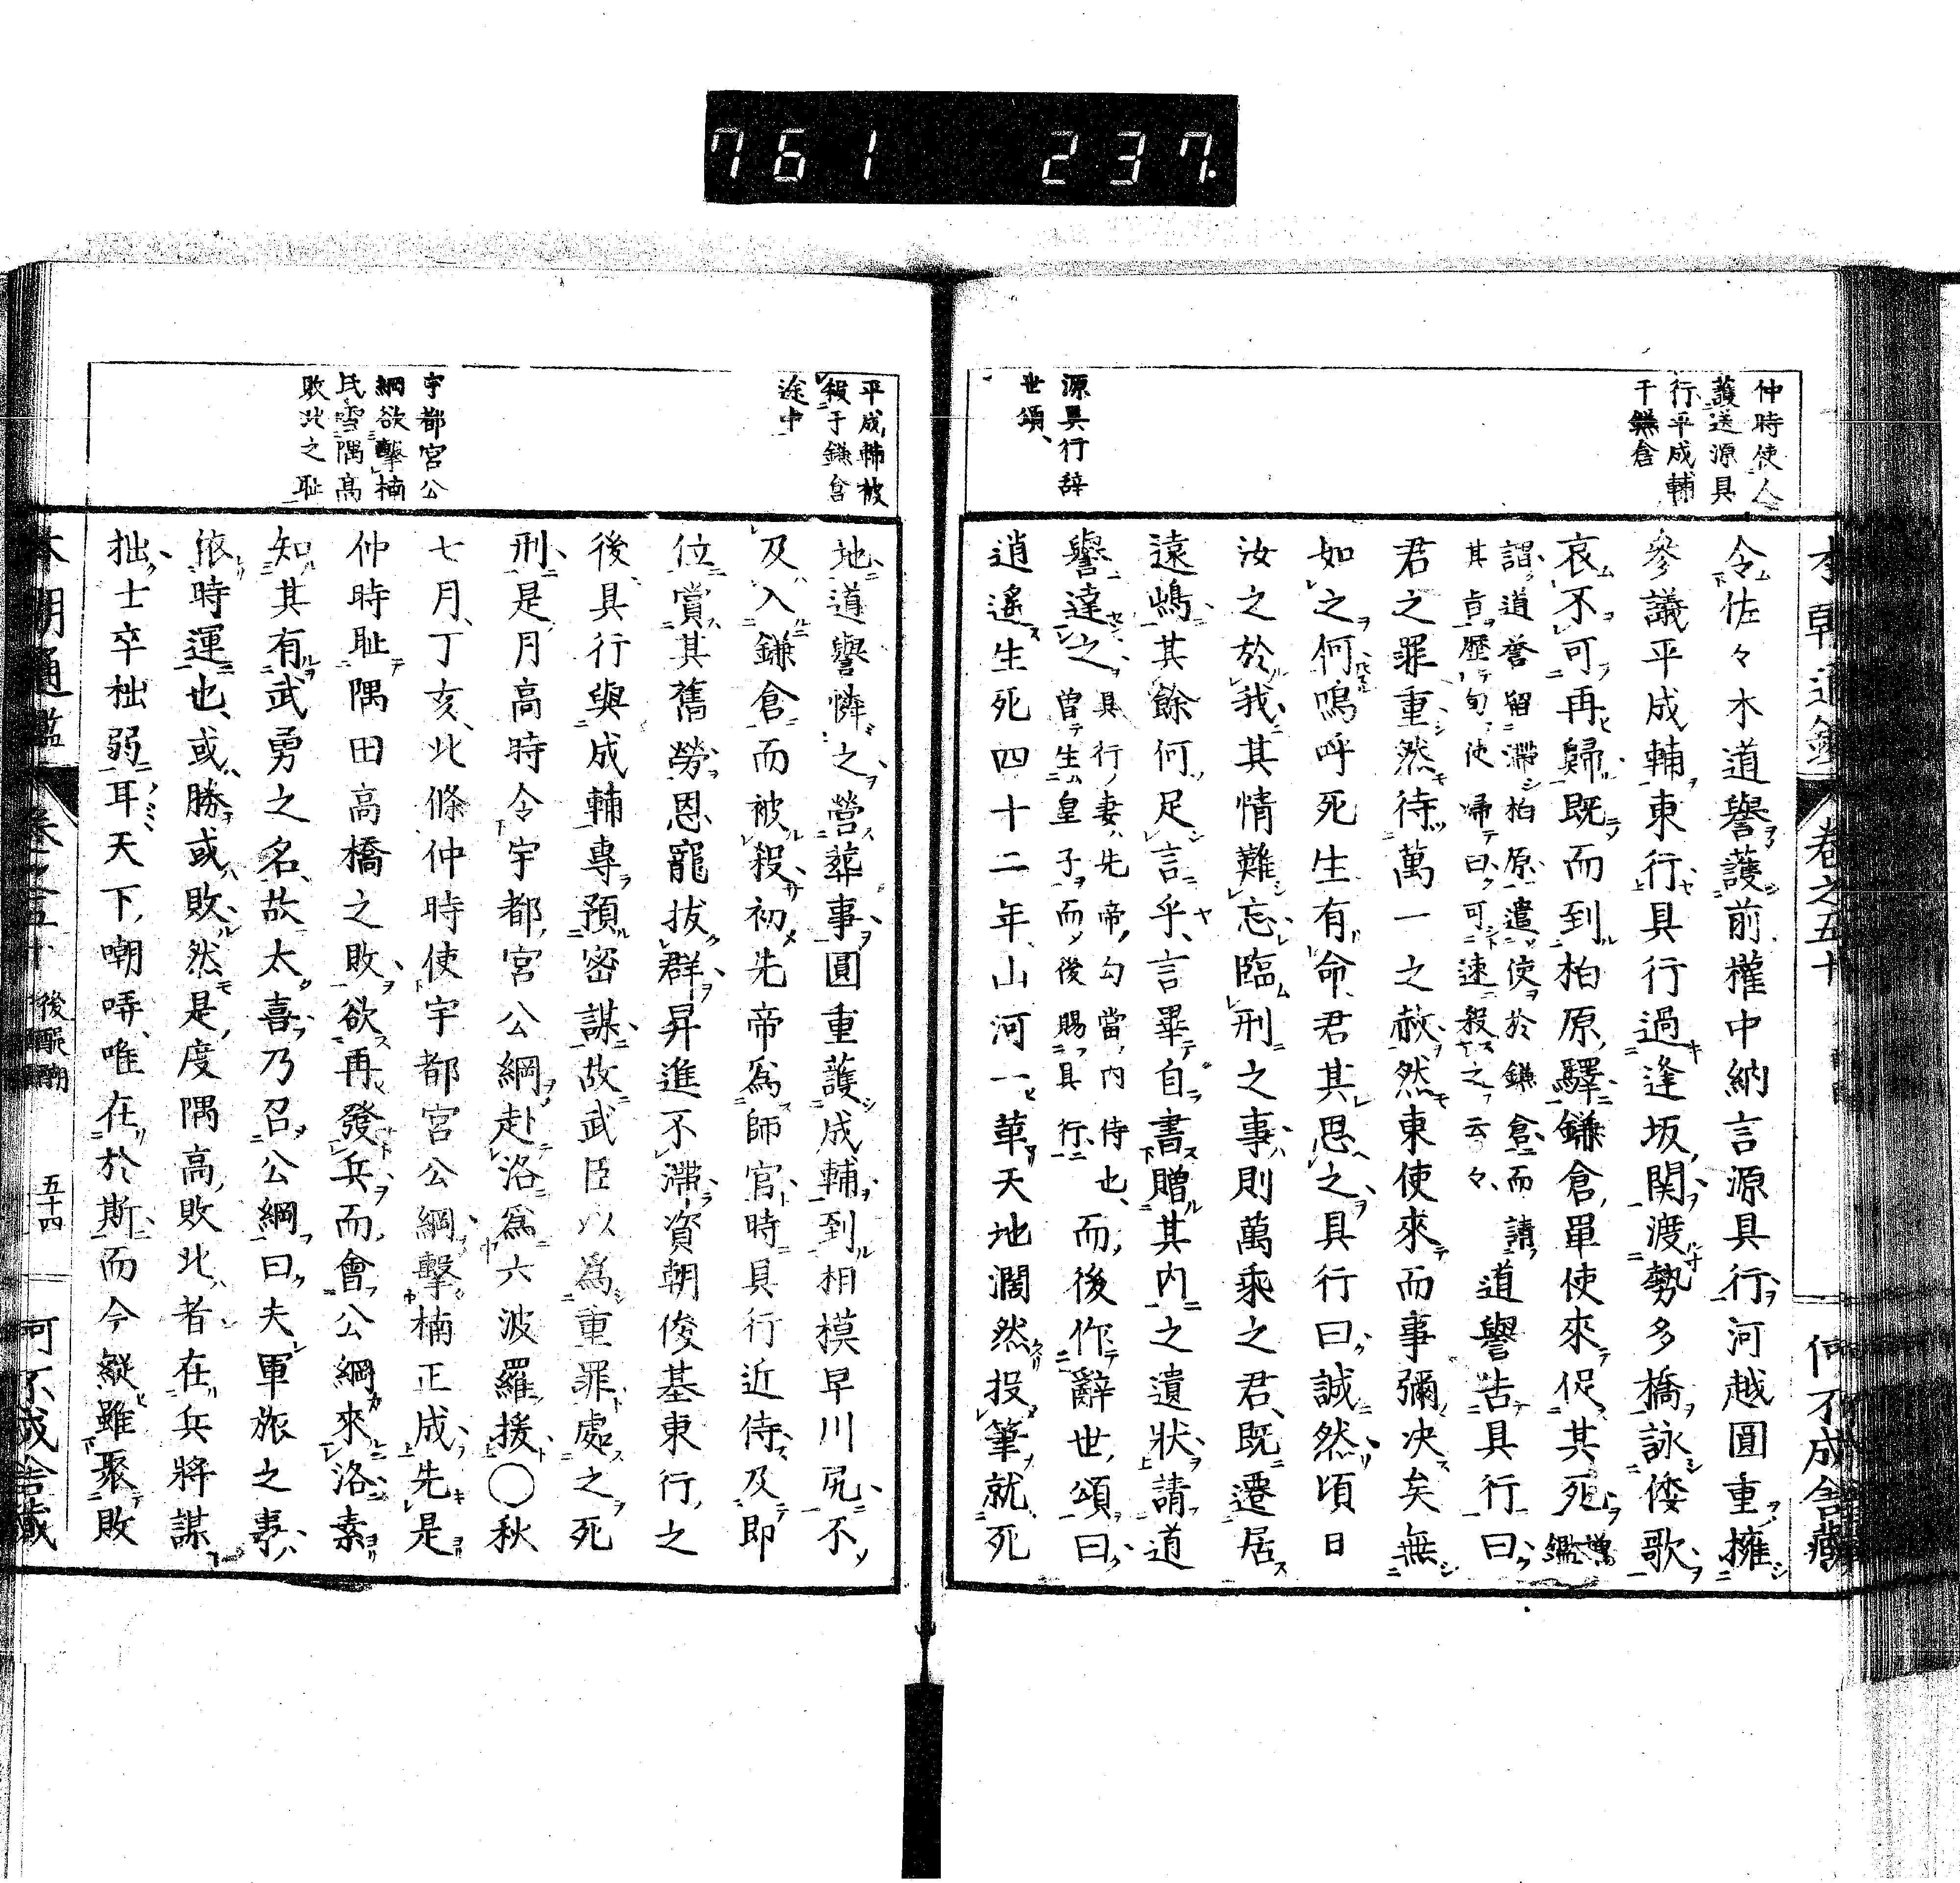 761 237.
本朝通鑑 卷之五十 何不成舍藏
仲時使人
護送源具
行平成輔
于鎌倉
源具行辞
世頌
令佐々木道譽護前權中納言源具行河越圓重擁
參議平成輔東行具行過逢坂關渡勢多橋詠倭歌
哀不可再歸既而到柏原驛鎌倉單使來促其死
謂道誉留滞柏原遣使於鎌倉而請
其旨歴旬使帰曰可速殺之云々
道譽告具行曰
君之罪重然待萬一之赦然東使來而事彌决矣無
如之何嗚呼死生有命君其思之具行曰誠然頃日
汝之於我其情難忘臨刑之事則萬乘之君既遷居
遠嶋其餘何足言乎言畢自書贈其内之遺状請道
譽達之
具行妻先帝勾當内侍也
曽生皇子而後賜具行
而後作辭世頌曰
逍遙生死四十二年山河一革天地濶然投筆就死
平成輔被
殺于鎌倉
途中
宇都宮公
綱欲擊楠
氏雪隅高
敗北之耻
地道譽憐之營葬事圓重護成輔到相模早川尻不
及入鎌倉而被殺初先帝爲師官時具行近侍及即
位賞其舊勞恩寵拔群昇進不滯資朝俊基東行之
後具行與成輔專預密謀故武臣以爲重罪處之死
刑是月高時令宇都宮公綱赴洛爲六波羅援〇秋
七月丁亥北條仲時使宇都宮公綱擊楠正成先是
仲時耻隅田高橋之敗欲再發兵而會公綱來洛素
知其有武勇之名故太喜乃召公綱曰夫軍旅之事
依時運也或勝或敗然是度隅高敗北者在兵將謀
拙士卒柮弱耳天下嘲哢唯在於斯而今縱雖聚敗
本朝通鑑 卷之五十 後醍醐 五十四 何不成舍藏